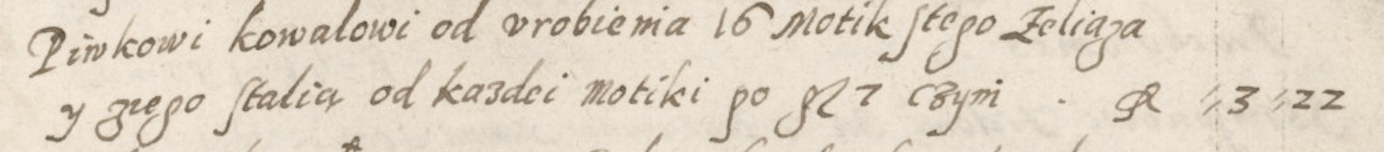 Piwkowi kowalowi od vrobienia 16 Motik stego Zeliaza
y zrego stalią od kazdei Motiki po gl 7 czyni . fl 3 22